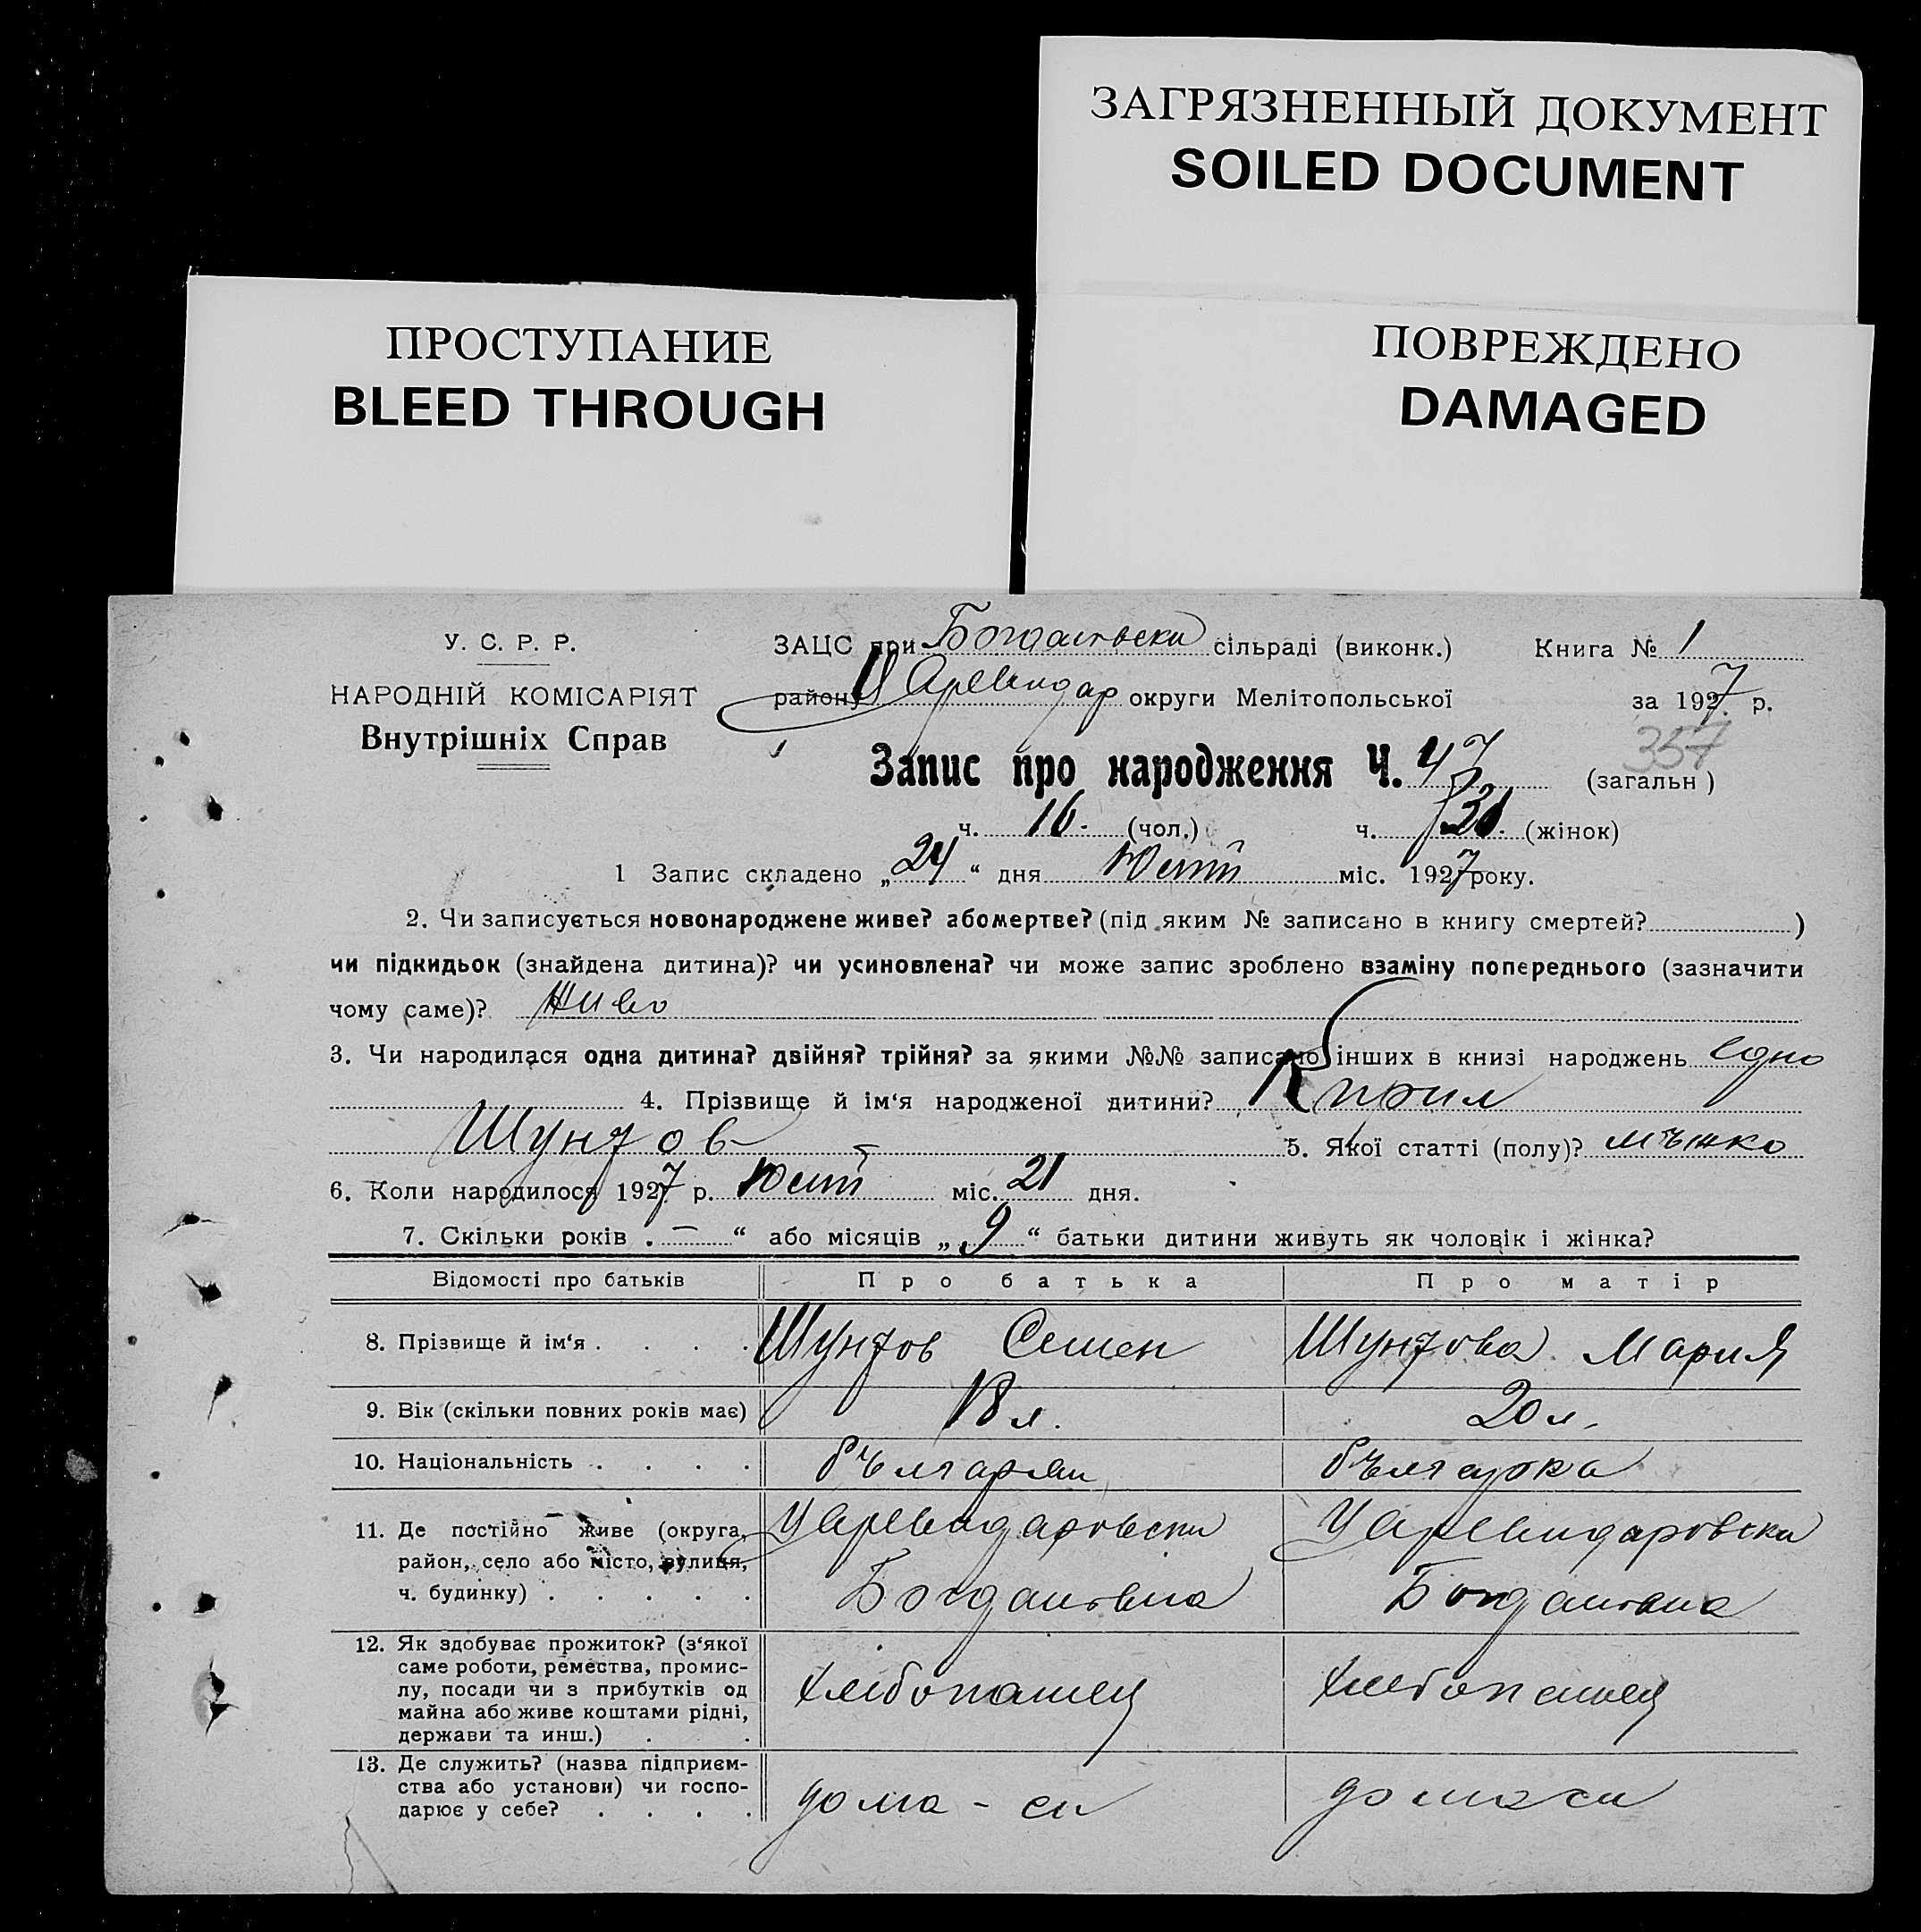 ЗАГРЯЗНЕННЫЙ ДОКУМЕНТ
SOILED DOCUMENT
ПРОСТУПАНИЕ
BLEED THROUGH
ПОВРЕЖДЕНО
DAMAGED
У. С. Р. Р.
НАРОДНІЙ КОМІСАРІЯТ
Внутрішніх Справ
ЗАЦС при сільраді (виконк.) Книга № 1
району Царевидар округи Мелітопольської за 1927 р.
357
Запис про народження Ч. 47 (загальн)
ч. 16. (чол.) ч. 31. (жінок)
1 Запис складено „24“ дня міс. 1927 року.
2. Чи записується новонароджене живе? або мертве? (під яким № записано в книгу смертей? )
чи підкидьок (знайдена дитина)? чи усиновлена? чи може запис зроблено взаміну попереднього (зазначити
чому саме)? Живо
3. Чи народилася одна дитина? двійня? трійня? за якими №№ записано інших в книзі народжень едно
4. Прізвище й ім‘я народженої дитини? Кирил
Шунтов 5. Якої статті (полу)? мъжко
6. Коли народилося 1927 р. міс. 21 дня.
7. Скільки років „—“ або місяців „9“ батьки дитини живуть як чоловік і жінка?
Відомості про батьків Про батька Про матір
8. Прізвище й ім‘я . . . . Шунтов Семен Шунтова Мария
9. Вік (скільки повних років має) 18 л. 20 л.
10. Національність . . . . българин българка
11. Де постійно живе (округа,
район, село або місто, вулиця,
ч. будинку) . . . . .
Царевидаровски Царевидаровски
Богдановка Богдановка
12. Як здобуває прожиток? (з‘якої
саме роботи, ремества, промис-
лу, посади чи з прибутків од
майна або живе коштами рідні,
держави та инш.) . .
хлебопашец хлебопашец
13. Де служить? (назва підприєм-
ства або установи) чи госпо-
дарює у себе? . . . .
дома - си дома си